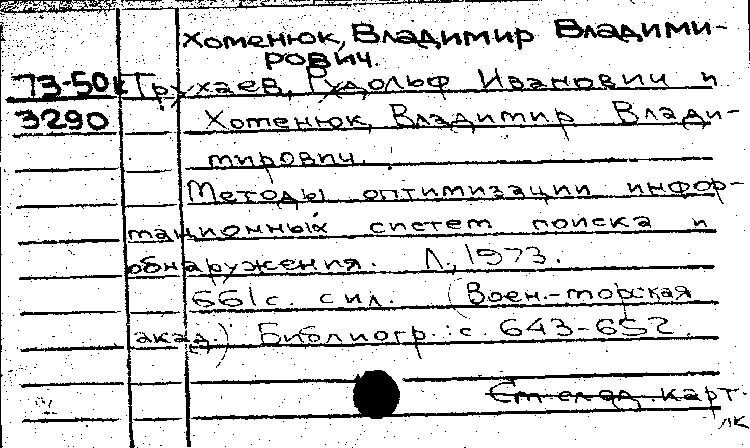 Хотенюк, Владимир Владими-
рович.
73-50к Трухаев, Рудольф Иванович и
3290 Хотенюк, Владимир Влади-
мирович.
Методы оптимизации инфор-
мационных систем поиска и
обнаружения. Л, 1973.
661с. с ил. (Воен.-морская
акад.) Библиогр.: с. 643-652.
карт.
лк